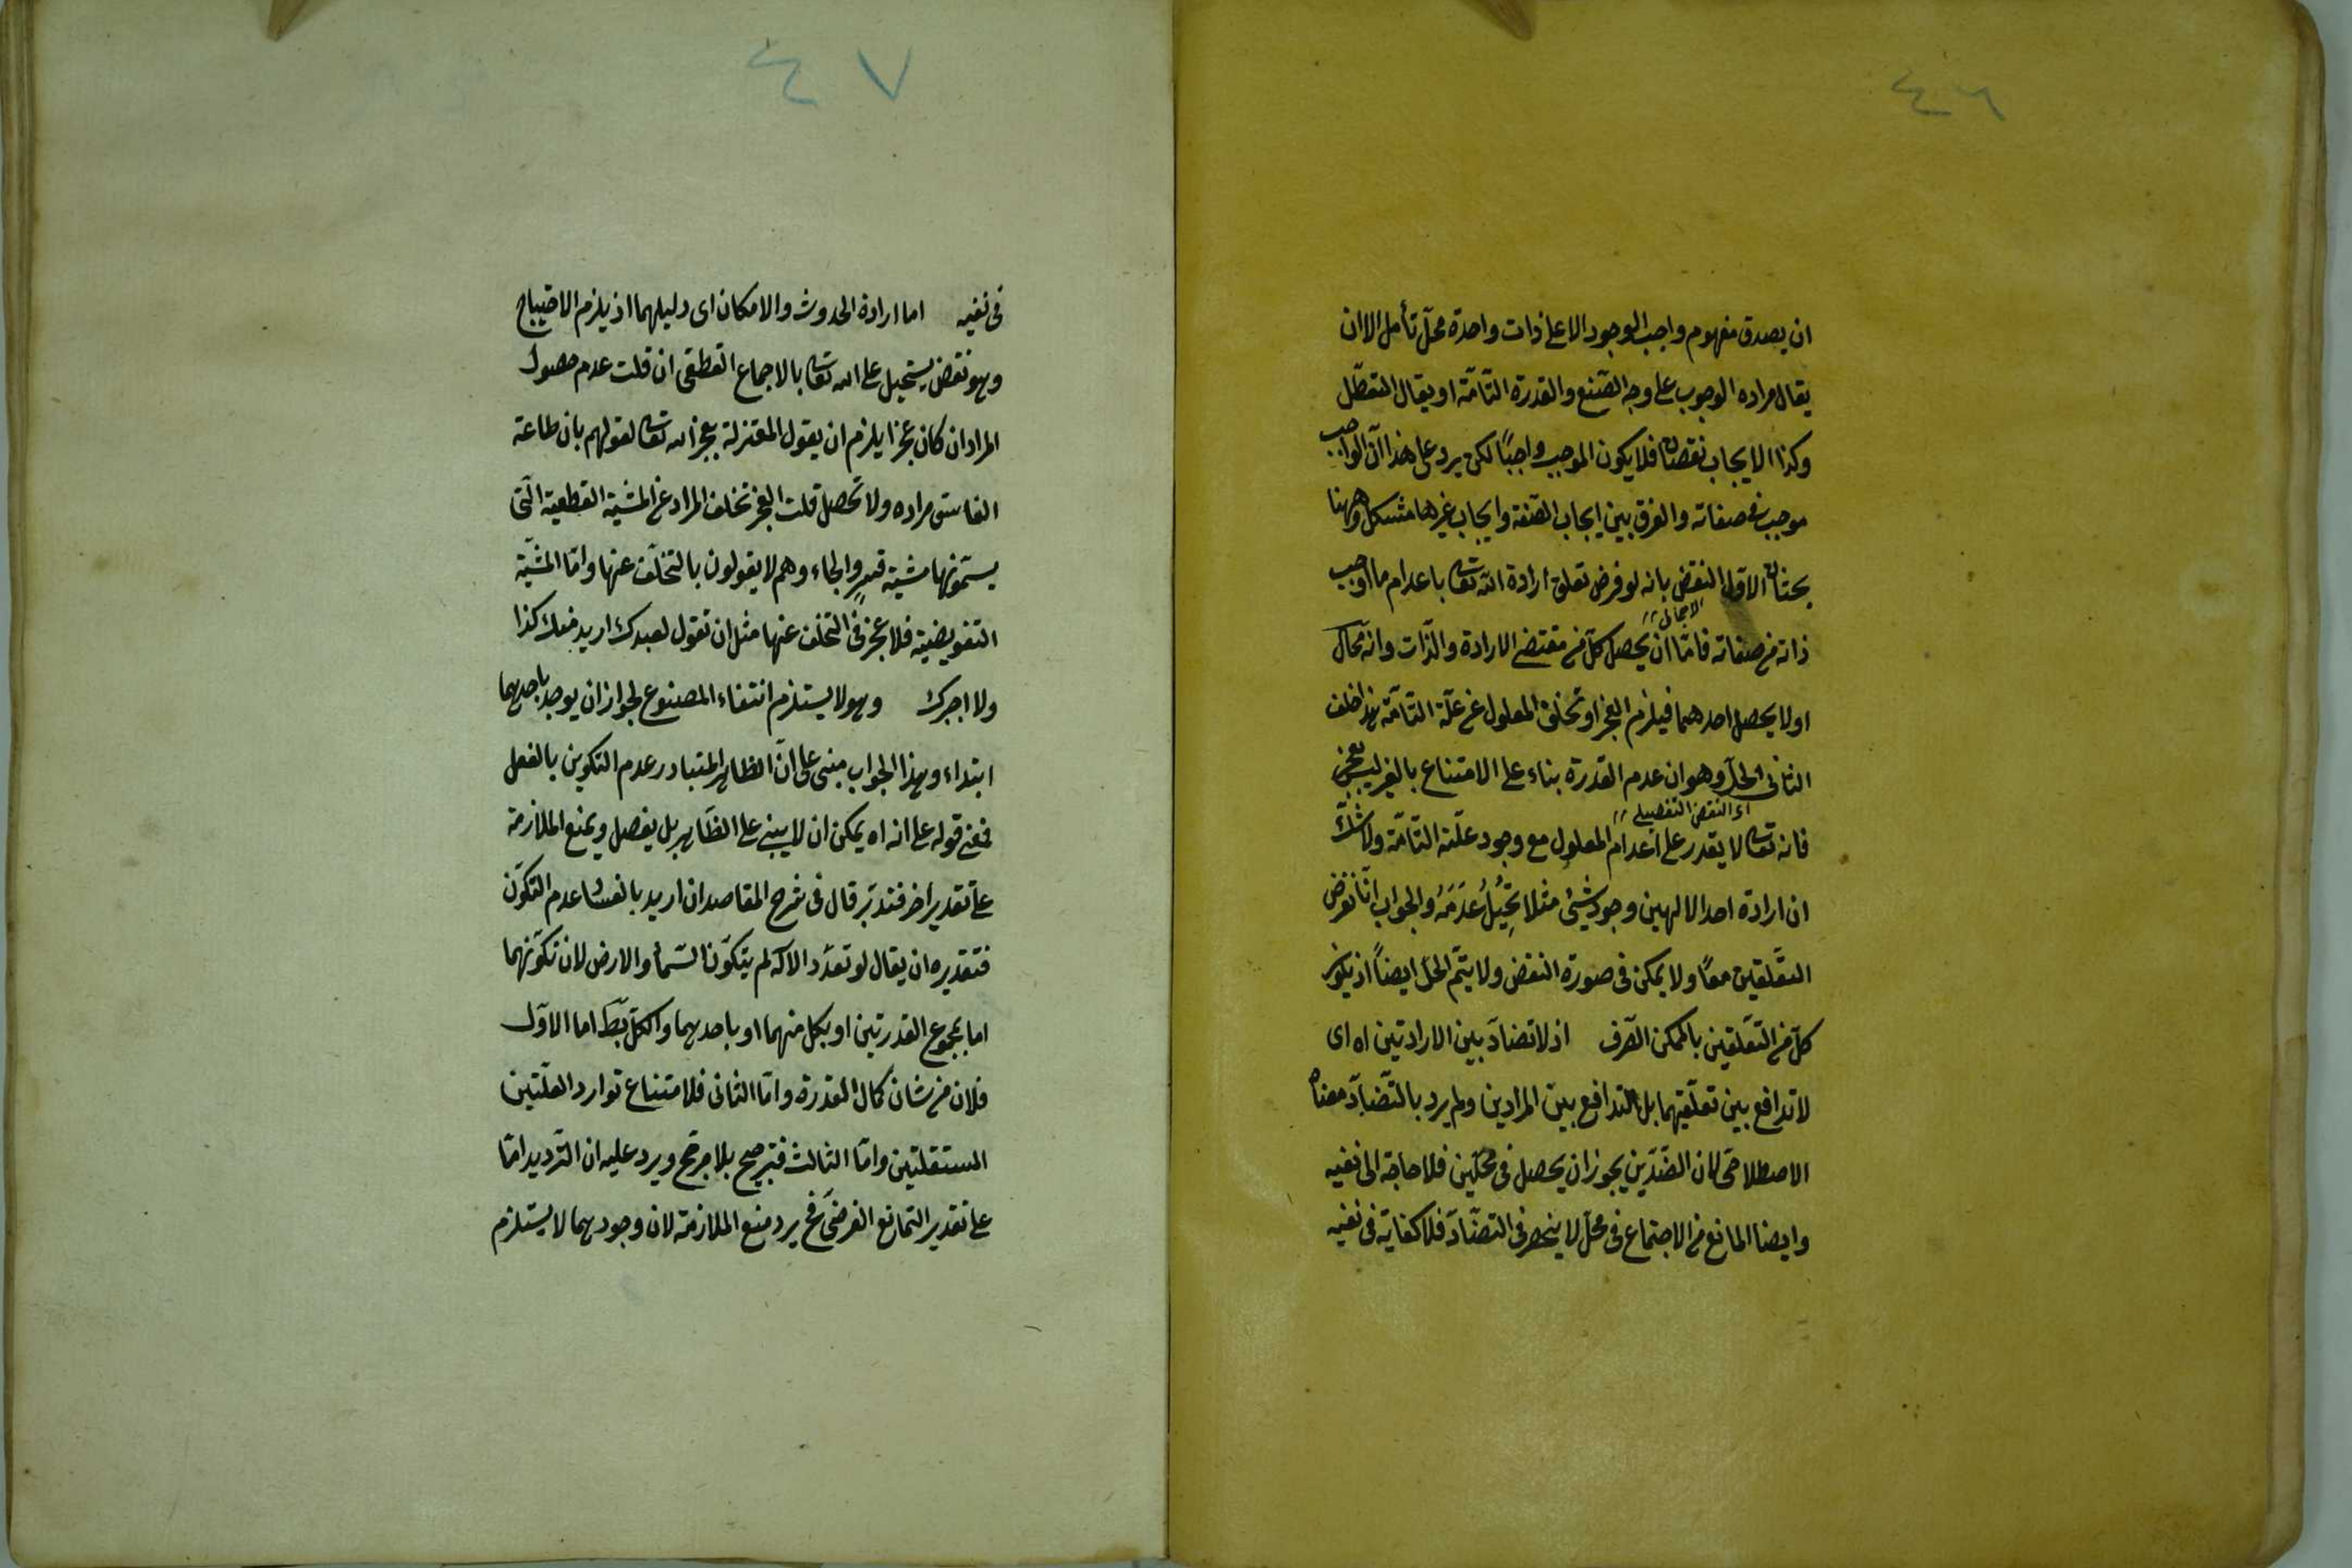 ٤٦
ان يصدق مفهوم واجب الوجود الا على ذات واحدة محل تأمل الا ان
يقال مراده الوجوب على وجه الصنع والقدرة التّامّة او يقال التعطّل
وكذا الايجاب نقصان فلا يكون الموجب واجبًا لكن يرد على هذا انّ الواجب
موجب فى صفاته والفرق بين ايجاب الصفة وايجاب غيرها مشكل وههنا
بحثان الاول النقض بانه لو فرض تعلق ارادة الله تعا باعدام ما اوجب
الاجمالى
ذاته من صفاته فامّا ان يحصل كلّ من مقتضى الارادة والذّات وانّه محال
او لا يحصل احدهما فيلزم العجز او تخلف المعلول عن علّة التامّة هذا خلف
الثانى الحلّ وهو ان عدم القدرة بناء على الامتناع بالغير ليس بعجز
اى النقض التفصيلى
فانه تعا لا يقدر على اعدام المعلول مع وجود علّته التّامّة ولا شكّ
ان ارادة احد الالهين وجود شئ مثلا يُحِيلُ عَدَمَهُ والجواب انّا نفرض
التعّلقين معًا ولا يمكن فى صورة النقض ولا يتّم الحلّ ايضاً اذ يكون
كلّ من التعّلقين بالممكن الصّرف اذ لا تضادّ بين الارادتين اه اى
لا تدافع بين تعلّقيهما بل التدافع بين المرادين ولم يرد بالتّضادّ معناه
الاصطلاحى لان الضّدّين يجوز ان يحصل فى محلّين فلا حاجة الى نفيه
وايضا المانع من الاجتماع فى محلّ لا ينحصر فى التضّادّ فلا كفاية فى نفيه
٤٧
فى نفيه اما ارادة الحدوث والامكان اى دليلهما اذ يلزم الاحتياج
وهو نقض يستحيل على الله تعا بالاجماع القطعى ان قلت عدم حصول
المراد ان كان عجزا يلزم ان يقول المعتزلة بعجز الله تعا لقولهم بان طاعة
الفاسق مراده ولا تحصل قلت العجز تخلف المراد عن المشيّة القطعية الّتى
يسمّونها مشية قسر والجاء وهم لا يقولون بالتخلّف عنها وامّا المشيّة
التفويضية فلا عجز فى التخلف عنها مثل ان تقول لعبدك اريد منك كذا
ولا اجبرك وهو لا يستلزم انتفاء المصنوع لجواز ان يوجد باحدهما
ابتداء وهذا الجواب مبنى على انّ الظاهر المتبادر عدم التكوين بالفعل
فمعنى قوله على انه اه يمكن ان لا يبنى على الظّاهر بل يفصل ويمنع الملازمة
على تقدير اخر فتدبّر قال فى شرح المقاصد ان اريد بالفساد عدم التكوّن
فتقديره ان يقال لو تعدّد الآله لم يتكوّن السّماُ والارض لان تكوّنهما
اما بمجموع القدرتين او بكل منهما او باحدهما والكلّ بط اما الاوّل
فلان من شان كمال القدرة وامّا الثانى فلامتناع توارد العلّتين
المستقلتين وامّا الثالث فترجيح بلا مرجّح ويرد عليه ان التّرديد امّا
على تقدير التمانع الفرضىّ فح يرد منع الملازمة لان وجودهما لا يستلزم